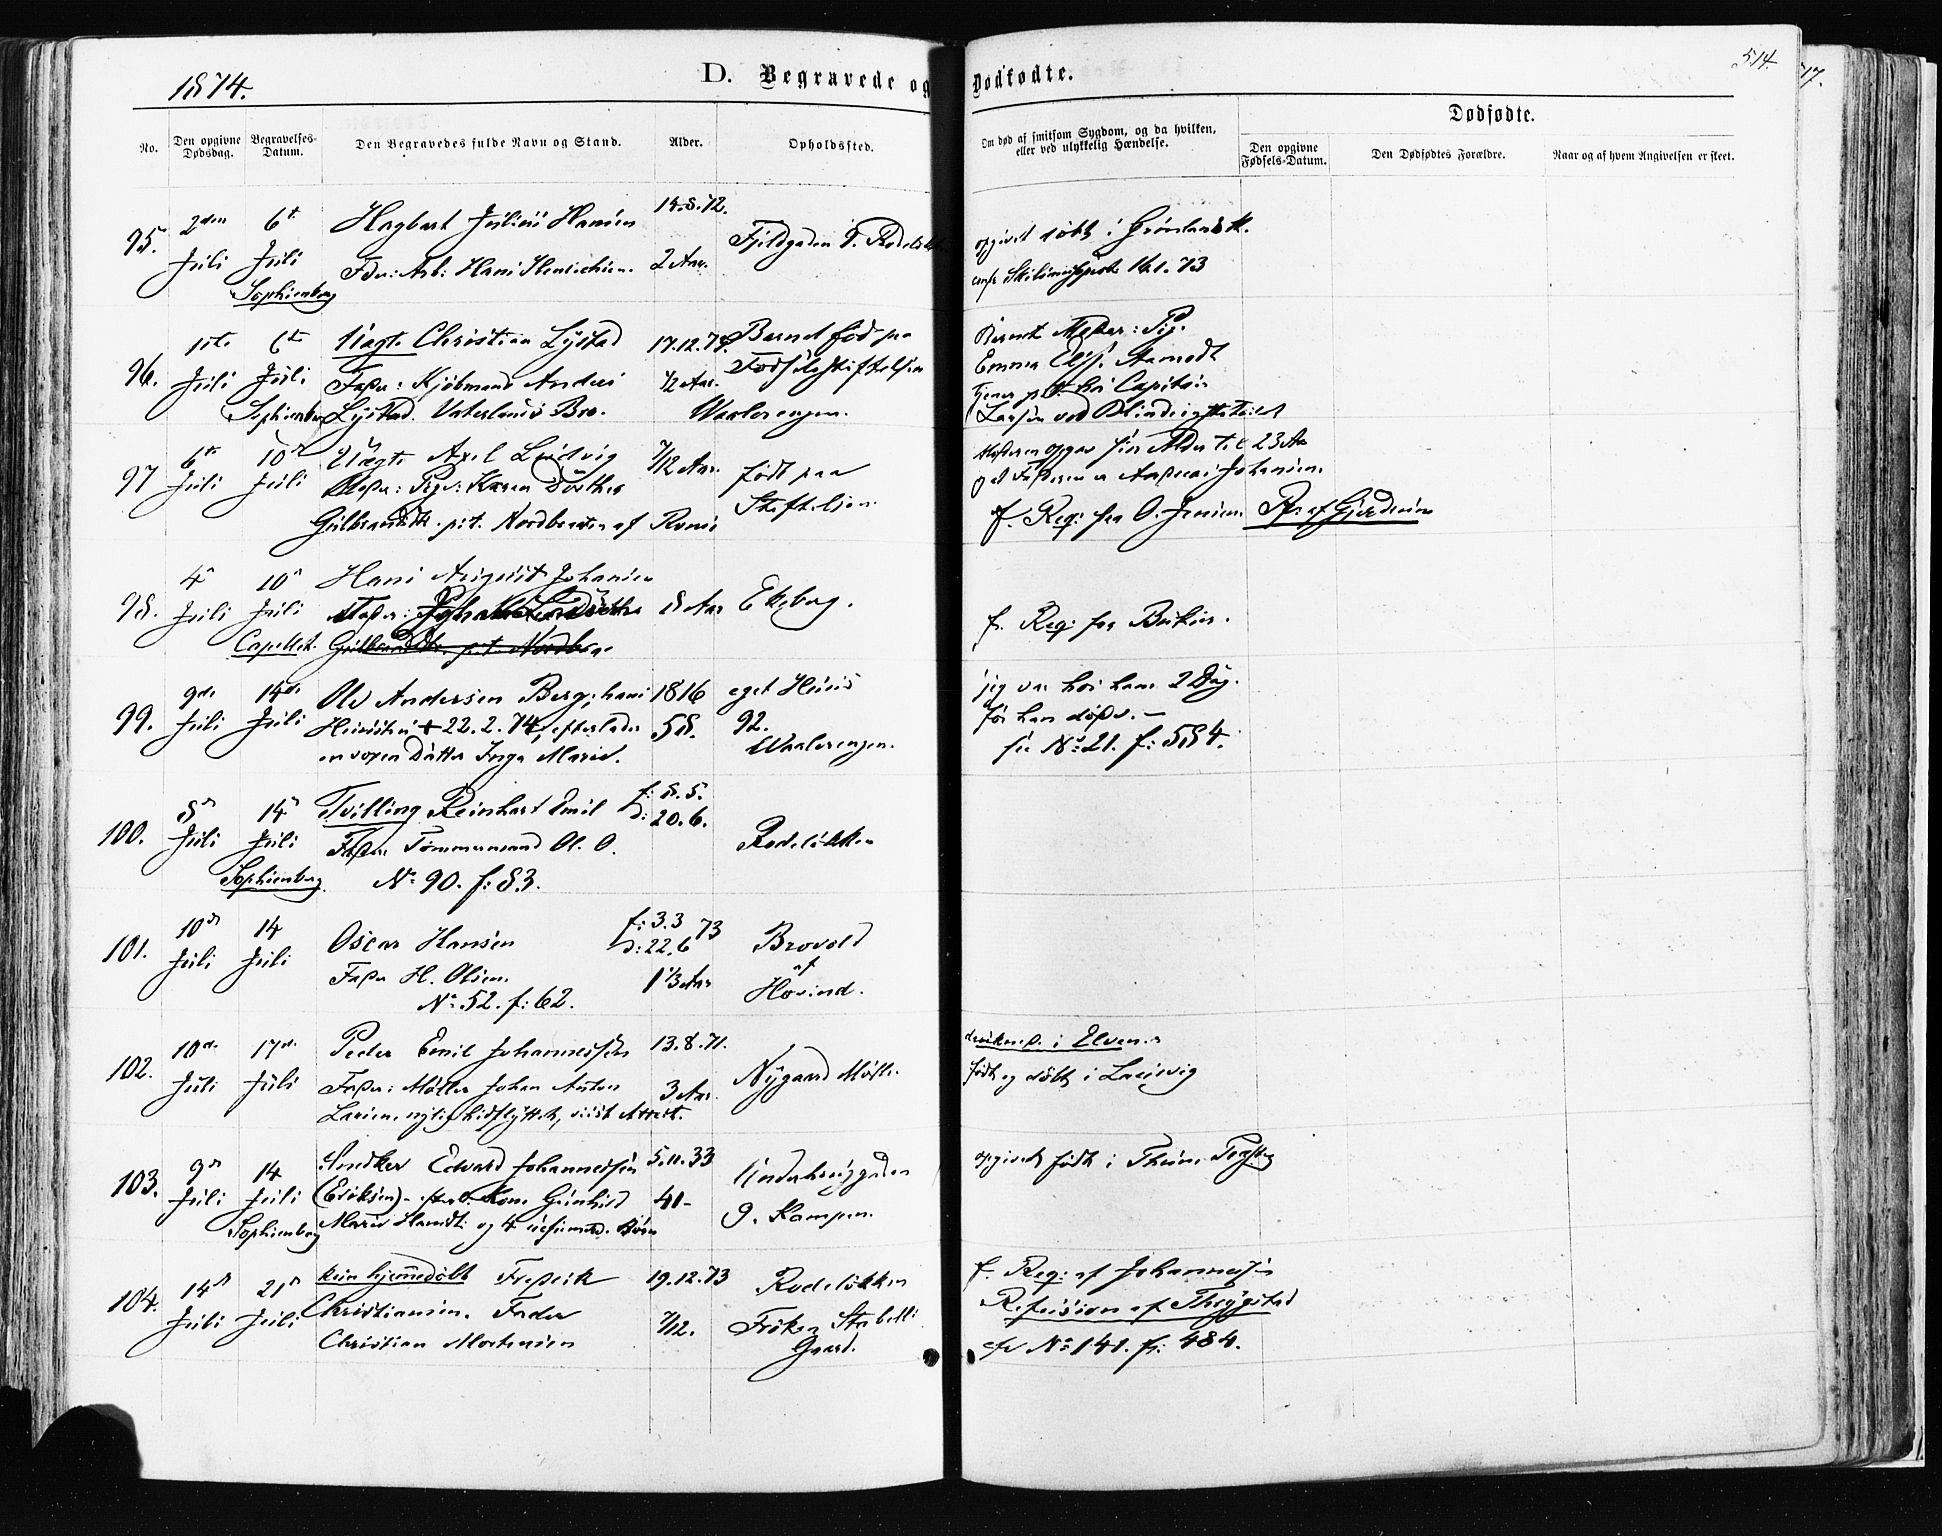 1874.
D. Begravede og Dødfødte.
514.
17.
No.
Den opgivne Dødsdag.
Begravelses-Datum.
Den Begravedes fulde Navn og Stand.
Alder.
Opholdssted.
Om død af smitsom Sygdom, og da hvilken, eller ved ulykkelig Hændelse.
Dødfødte.
Den opgivne Fødsels-Datum.
Den Dødfødtes Forældre.
Naar og af hvem Angivelsen er skeet.
95.
2den Juli
6t Juli
Sophienberg
Hagbart Julius Hansen
Fader: Arb: Hans Henrichsen.
14.8.72.
2 Aar.
opgivet døbt i Grønlands K.
16.1.73
96.
1ste Juli
6te Juli
Sophienberg
Uægte Christian Lystad
Fader: Kjøbmand Anders
Lystad. Vaterlands Bro.
17.12.73.
1/2 Aar.
Barnet født paa
Fødselsstiftelsen
Waalerengen.
Barnets Moder: Pig.
Emma
Tjener p.t. hos Capitain
Larsen ved
97
6te Juli
10de Juli
Uægte Axel Ludvig
Moder: Pige: Karen Dorthea
Gulbrandsdtr. p.t. Nordbraaten af
7/12 Aar.
født paa
Stiftelsen.
Moderen opgav sin Alder til 23 Aar
og at Faderen er Johansen.
f. Reg: fra O. Jensen.
98.
4de Juli
10de Juli
Capellet.
Hans August Johansen
Moder:
Gulbrandsdtr. p.t. Nordbra
8 Aar
Ekeberg.
f. Reg: fra
99.
9de Juli
14de Juli
Ole Andersen Berg; hans
Hustru + 22.2.74, efterlader
en voxen Datter Inga Marie.
1816
58.
eget Huus
92.
Waalerengen.
jeg var hos ham 2 Dag.
før han døde. –
se No 21. f: 584.
100.
8de Juli
14de Juli
Sophienberg
Tvilling Reinhart Emil
Fader Tømmermand Ol. O.
No 90. f: 83.
f: 8.5.
d: 20.6.
Rodeløkken
101.
10de Juli
14 Juli
Oscar Hansen
Fader H. Olsen.
No 52. f: 62.
f: 3.3 73
d: 22.6
1 1/3 Aar
Brovold
af
Hovind.
102.
10de Juli
17de Juli
Peder Emil Johannessen
Fader: Møller Johan Anton
Larsen, nylig hidflyttet, viist Attest.
13.8.71.
3 Aar.
Nygaard Mølle.
druknede i Elven.
født og døbt i Laurvig
103.
9de Juli
14 Juli
Sophienberg
Snedker Edvard Johannessen
(Eriksen) – efterl. Kone Gunhild
Marie og 4 uforsørgede Børn
5.11.33
41–
9. Kampen.
opgivet født i
104.
14de Juli
21de Juli
kun hjemmedøbt Fredrik
Christiansen. Fader
Christian Mortensen
19.12.73
7/12.
Rodeløkken
Frøken Stabells
Gaard.
f. Reg: af Johannessen
cfr No 141. f: 484.